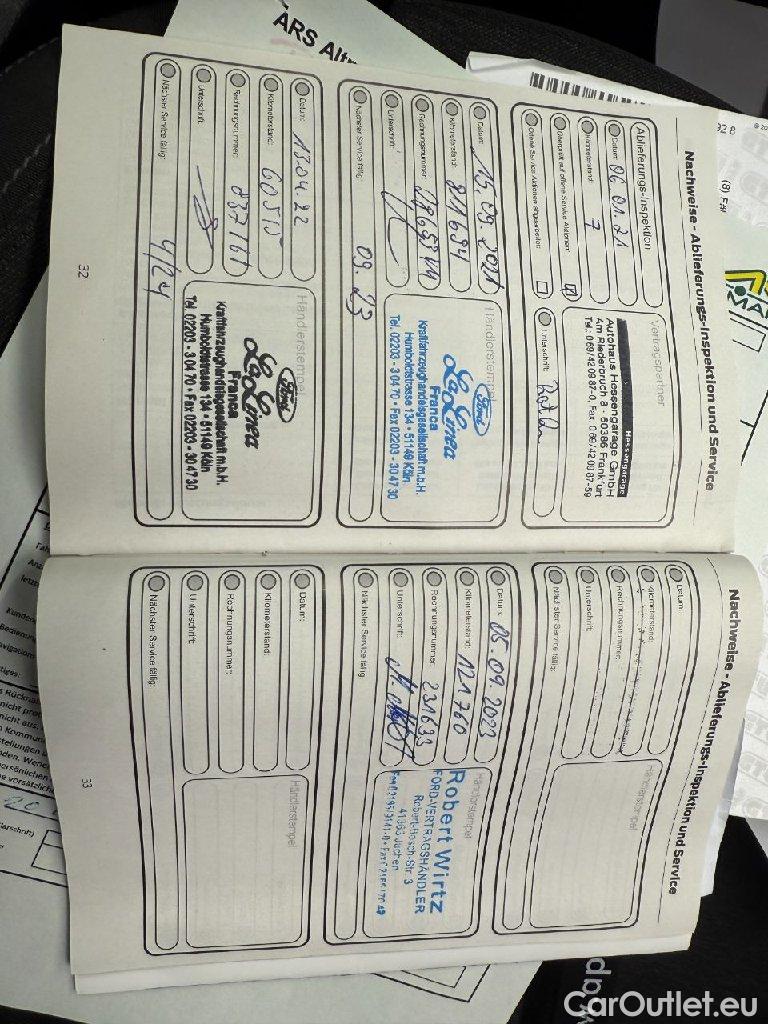 ARS Altm
Nachweise - Ablieferungs-Inspektion und Service
Ablieferungs-Inspektion
Datum: 06.01.21
Kilometerstand: 7
Überprüft auf offene Service Aktionen:
Offene Service Aktionen abgearbeitet:
Vertragspartner
Hessengarage
Autohaus Hessengarage GmbH
Am Riederbruch 8 - 60386 Frankfurt
Tel.: 069/42 09 87-0, Fax: 069/42 09 87-59
Unterschrift:
Datum: 15.09.2021
Kilometerstand:
Rechnungsnummer:
Unterschrift:
Nächster Service fällig: 09.23
Händlerstempel
Ford
La Linea
Franca
Kraftfahrzeughandelsgesellschaft m.b.H.
Humboldtstrasse 134 • 51149 Köln
Tel. 02203 - 3 04 70 • Fax 02203 - 30 47 30
Datum: 13.04.22
Kilometerstand: 60515
Rechnungsnummer: 237161
Unterschrift:
Nächster Service fällig: 4/24
Händlerstempel
Ford
La Linea
Franca
Kraftfahrzeughandelsgesellschaft m.b.H.
Humboldtstrasse 134 • 51149 Köln
Tel. 02203 - 3 04 70 • Fax 02203 - 30 47 30
32
Nachweise - Ablieferungs-Inspektion und Service
Datum:
Kilometerstand:
Rechnungsnummer:
Unterschrift:
Nächster Service fällig:
Händlerstempel
Datum: 05.09.2023
Kilometerstand: 121760
Rechnungsnummer: 231633
Unterschrift:
Nächster Service fällig:
Händlerstempel
Robert Wirtz
FORD-VERTRAGSHÄNDLER
Robert-Bosch-Str. 3
41363 Jüchen
Datum:
Kilometerstand:
Rechnungsnummer:
Unterschrift:
Nächster Service fällig:
Händlerstempel
33
CarOutlet.eu